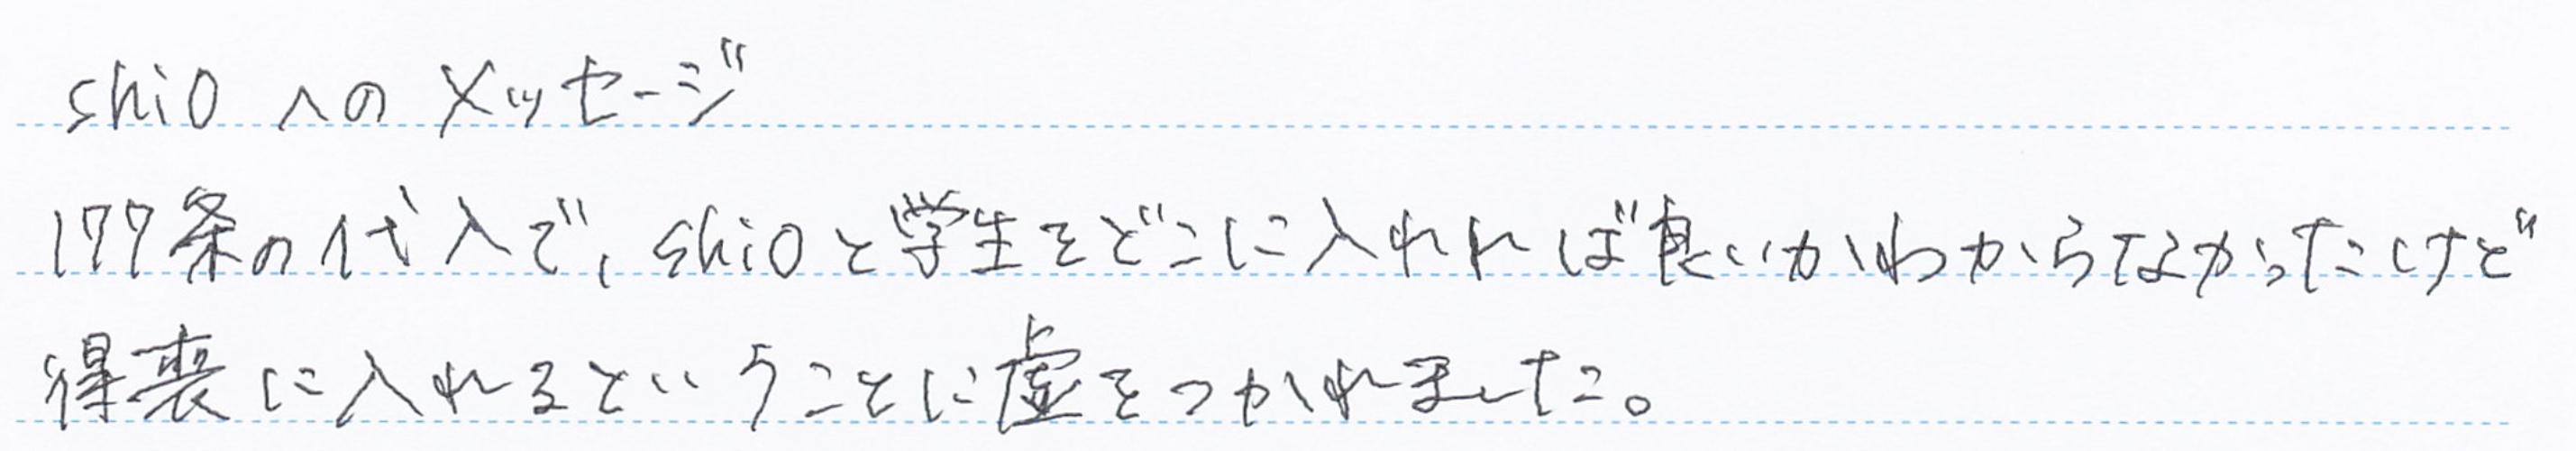 shioへのメッセージ
177条の代入で、shioと学生をどこに入れれば良いかわからなかったけど
得喪に入れるということに虚をつかれました。